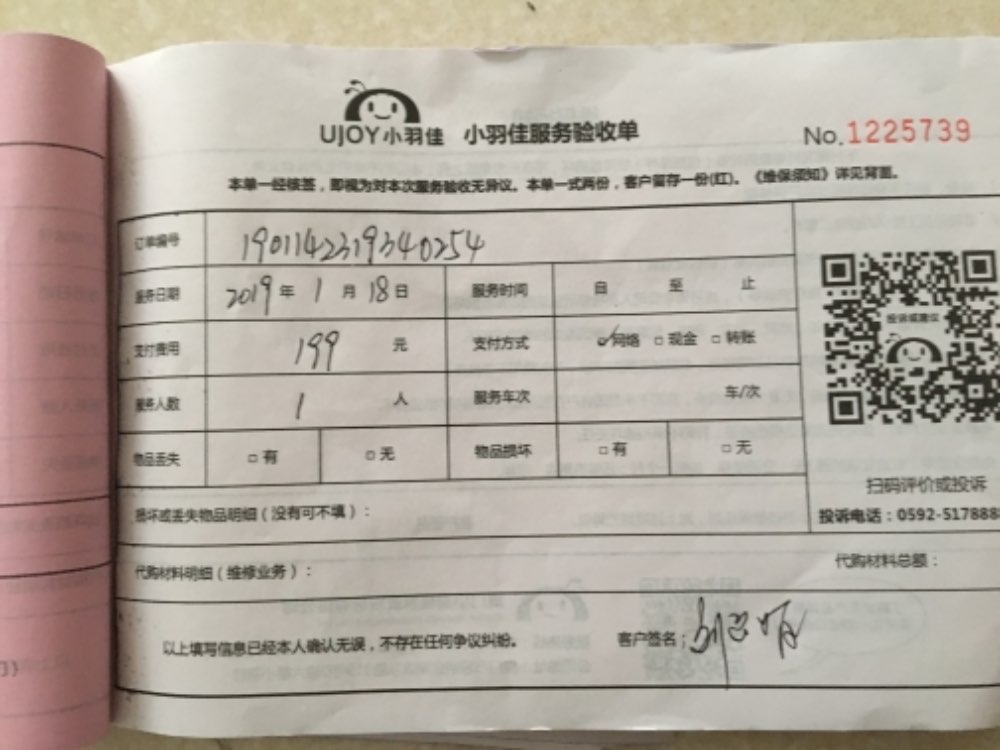 UJOY小羽佳 小羽佳服务验收单 No.1225739
本单一经核签，即视为对本次服务验收无异议。本单一式两份，客户留存一份(红)。《维保须知》详见背面。
订单编号 1901142319340254
服务日期 2019年1月18日 服务时间 自 至 止
支付费用 199 元 支付方式 ☑网络 □现金 □转账
服务人数 1 人 服务车次 车/次
物品丢失 □有 □无 物品损坏 □有 □无
投诉或建议
扫码评价或投诉
投诉电话：0592-5178888
损坏或丢失物品明细（没有可不填）：
代购材料明细（维修业务）： 代购材料总额：
以上填写信息已经本人确认无误，不存在任何争议纠纷。 客户签名：